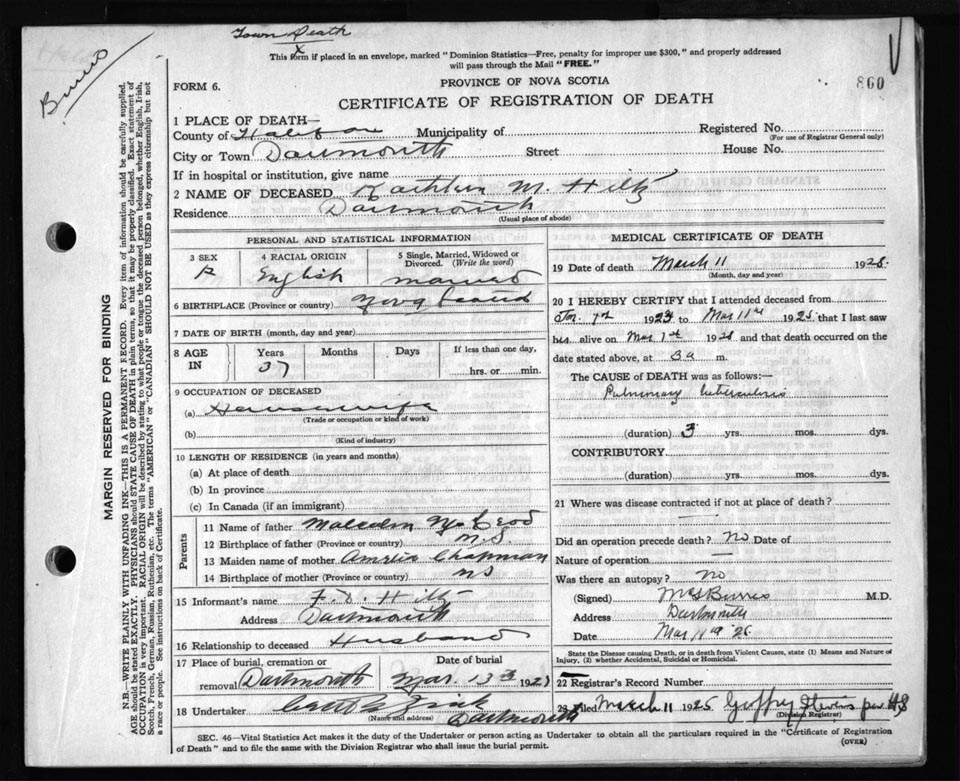 Town Death
This form if placed in an envelope, marked "Dominion Statistics—Free, penalty for improper use $300," and properly addressed
will pass through the Mail "FREE."
Burris
FORM 6.
PROVINCE OF NOVA SCOTIA
860
CERTIFICATE OF REGISTRATION OF DEATH
MARGIN RESERVED FOR BINDING
N.B.—WRITE PLAINLY WITH UNFADING INK—THIS IS A PERMANENT RECORD. Every item of information should be carefully supplied.
AGE should be stated EXACTLY. PHYSICIANS should STATE CAUSE OF DEATH in plain terms, so that it may be properly classified. Exact statement of
OCCUPATION is very important. RACIAL ORIGIN will be described by stating to what people or tongue the deceased person belonged, whether English, Irish,
Scotch, French, German, Russian, Ruthenian, etc. The terms "AMERICAN" or "CANADIAN" SHOULD NOT BE USED as they express citizenship but not
a race or people. See instructions on back of Certificate.
1 PLACE OF DEATH—
County of Halifax Municipality of Registered No.
(For use of Registrar General only)
City or Town Dartmouth Street House No.
If in hospital or institution, give name
2 NAME OF DECEASED Kathleen M. Hiltz
Residence Dartmouth
(Usual place of abode)
PERSONAL AND STATISTICAL INFORMATION
3 SEX 4 RACIAL ORIGIN 5 Single, Married, Widowed or Divorced. (Write the word)
English married
6 BIRTHPLACE (Province or country)
7 DATE OF BIRTH (month, day and year)
8 AGE IN Years Months Days If less than one day,
37 hrs. or min.
9 OCCUPATION OF DECEASED
(a) Housewife
(Trade or occupation or kind of work)
(b)
(Kind of industry)
10 LENGTH OF RESIDENCE (in years and months)
(a) At place of death
(b) In province
(c) In Canada (if an immigrant)
Parents
11 Name of father Malcolm McLeod
12 Birthplace of father (Province or country) N.S.
13 Maiden name of mother Amelia Chapman
14 Birthplace of mother (Province or country) NS
15 Informant's name F. D. Hiltz
Address Dartmouth
16 Relationship to deceased Husband
17 Place of burial, cremation or Date of burial
removal Dartmouth Mar. 13th 192
18 Undertaker Zink
(Name and address) Dartmouth
MEDICAL CERTIFICATE OF DEATH
19 Date of death March 11 1925.
(Month, day and year)
20 I HEREBY CERTIFY that I attended deceased from
192 to Mar 11th 1925 that I last saw
her alive on Mar 1st 192 and that death occurred on the
date stated above, at 3 a m.
The CAUSE of DEATH was as follows:—
Pulmonary tuberculosis
(duration) 3 yrs. mos. dys.
CONTRIBUTORY
(duration) yrs. mos. dys.
21 Where was disease contracted if not at place of death?
—
Did an operation precede death? no Date of
Nature of operation —
Was there an autopsy? no
(Signed) M G Burris M.D.
Address Dartmouth
Date Mar 11th
State the Disease causing Death, or in death from Violent Causes, state (1) Means and Nature of
Injury, (2) whether Accidental, Suicidal or Homicidal.
22 Registrar's Record Number
23 Filed March 11 1925 Stevens per
(Division Registrar)
SEC. 46—Vital Statistics Act makes it the duty of the Undertaker or person acting as Undertaker to obtain all the particulars required in the "Certificate of Registration
of Death" and to file the same with the Division Registrar who shall issue the burial permit.
(OVER)